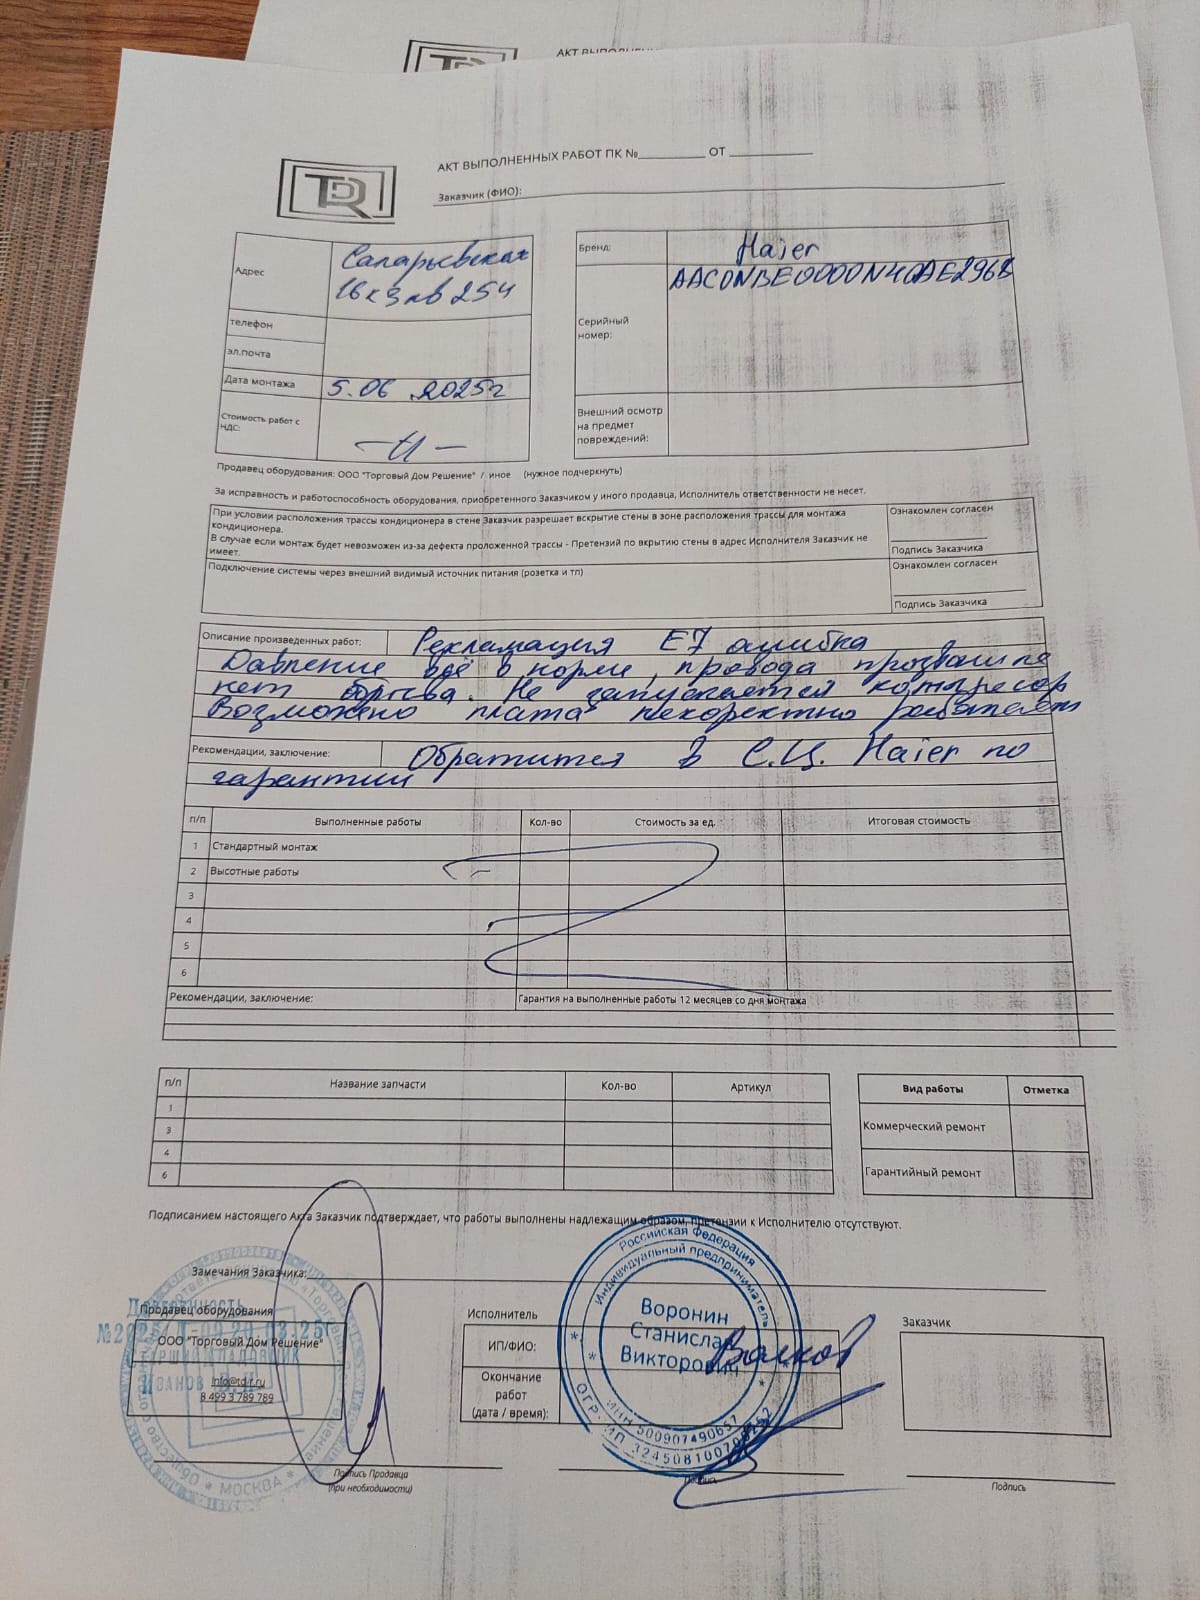 АКТ ВЫПОЛНЕНН
TDR
АКТ ВЫПОЛНЕННЫХ РАБОТ ПК №__________ ОТ ____________
Заказчик (ФИО):
Адрес
Саларьевская
16к3 кв 254
телефон
эл.почта
Дата монтажа
5.06.2025г
Стоимость работ с НДС:
Бренд:
Haier
Серийный номер:
AAC0NBE0000N40AE2968
Внешний осмотр
на предмет
повреждений:
Продавец оборудования: ООО "Торговый Дом Решение" / иное (нужное подчеркнуть)
За исправность и работоспособность оборудования, приобретенного Заказчиком у иного продавца, Исполнитель ответственности не несет.
При условии расположения трассы кондиционера в стене Заказчик разрешает вскрытие стены в зоне расположения трассы для монтажа
кондиционера.
В случае если монтаж будет невозможен из-за дефекта проложенной трассы - Претензий по вкрытию стены в адрес Исполнителя Заказчик не
имеет.
Ознакомлен согласен
Подпись Заказчика
Подключение системы через внешний видимый источник питания (розетка и тп)
Ознакомлен согласен
Подпись Заказчика
Описание произведенных работ: Рекламация E7 ошибка
Давление всё в норме, провода прозвашине
нет обрыва. Не запускается компресор
Возможено плата некоректно работает
Рекомендации, заключение: Обратится в С.Ц. Haier по
гарантии
п/п Выполненные работы Кол-во Стоимость за ед. Итоговая стоимость
1 Стандартный монтаж
2 Высотные работы
3
4
5
6
Рекомендации, заключение: Гарантия на выполненные работы 12 месяцев со дня монтажа
п/п Название запчасти Кол-во Артикул
1
3
4
6
Вид работы Отметка
Коммерческий ремонт
Гарантийный ремонт
Подписанием настоящего Акта Заказчик подтверждает, что работы выполнены надлежащим образом, претензии к Исполнителю отсутствуют.
Замечания Заказчика:
Продавец оборудования
ООО "Торговый Дом Решение"
info@td-r.ru
8 499 3 789 789
ИВАНОВ
МОСКВА
Подпись Продавца
(при необходимости)
Исполнитель
ИП/ФИО:
Окончание
работ
(дата / время):
Российская Федерация
Индивидуальный предприниматель
Воронин
Станислав
Викторович
ИНН 500907490657
Волков
Подпись
Заказчик
Подпись